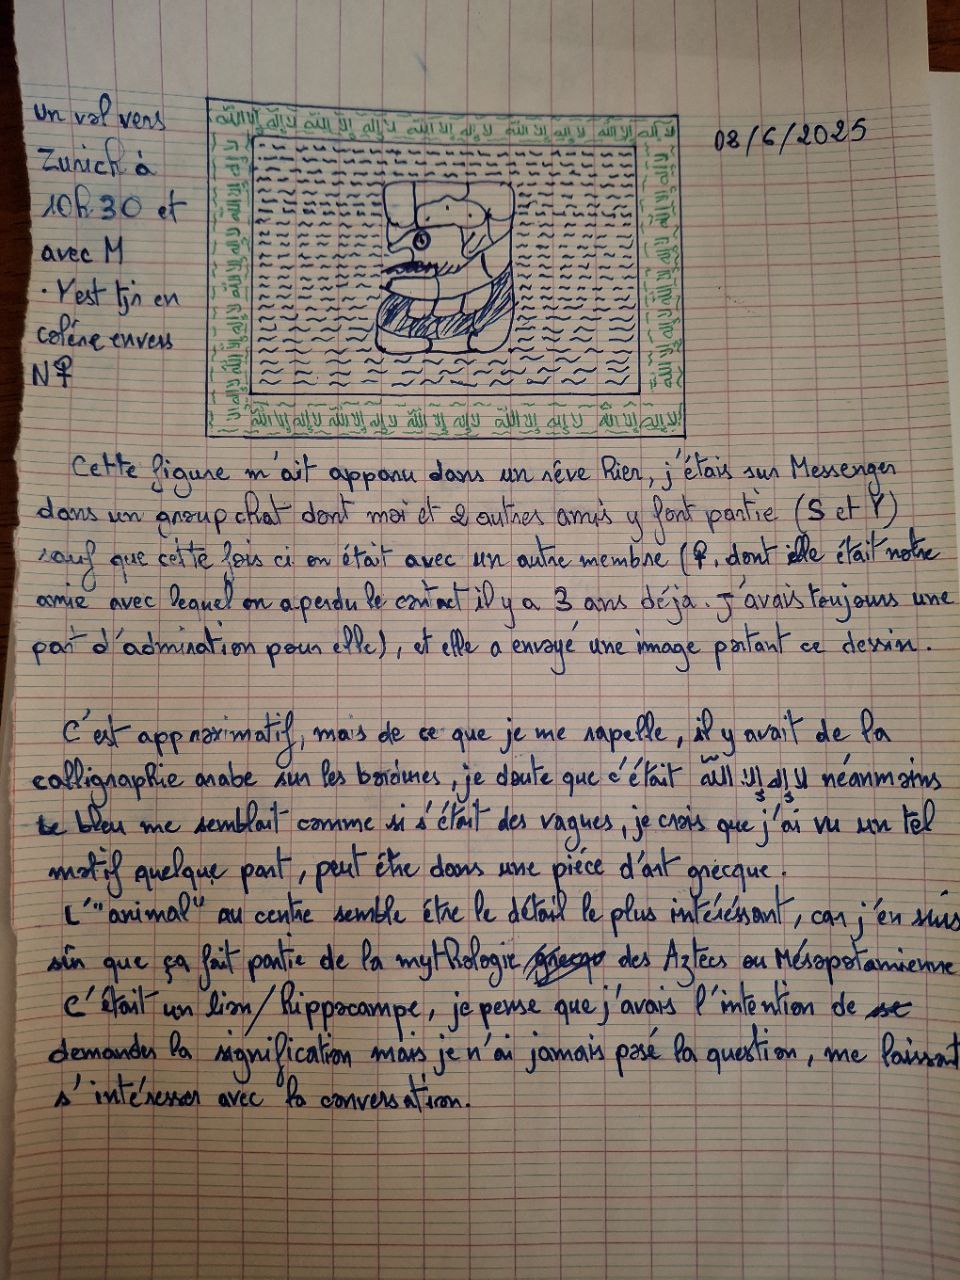 un vol vers
Zurich à
10h30 et
avec M
. Y est tjr en
colère envers
N♀
08/6/2025
لا إله إلا الله لا إله إلا الله لا إله إلا الله لا إله إلا الله لا إله
لا إله إلا الله لا إله إلا الله لا إله إلا الله لا إله إلا الله لا إله إلا الله
Cette figure m'ait apparu dans un rêve hier, j'étais sur Messenger
dans un group chat dont moi et 2 autres amis y font partie (S et Y)
sauf que cette fois ci on était avec un autre membre (♀, dont elle était notre
amie avec lequel on a perdu le contact il y a 3 ans déjà. J'avais toujours une
part d'admiration pour elle), et elle a envoyé une image portant ce dessin.
C'est approximatif, mais de ce que je me rapelle, il y avait de la
calligraphie arabe sur les bordures, je doute que c'était لا إله إلا الله néanmoins
le bleu me semblait comme si s'était des vagues, je crois que j'ai vu un tel
motif quelque part, peut être dans une pièce d'art grecque.
L'"animal" au centre semble être le détail le plus intéréssant, car j'en suis
sûr que ça fait partie de la mythologie des Aztecs ou Mésopotamienne
C'était un lion/hippocampe, je pense que j'avais l'intention de
demander la signification mais je n'ai jamais posé la question, me laissant
s'intéresser avec la conversation.